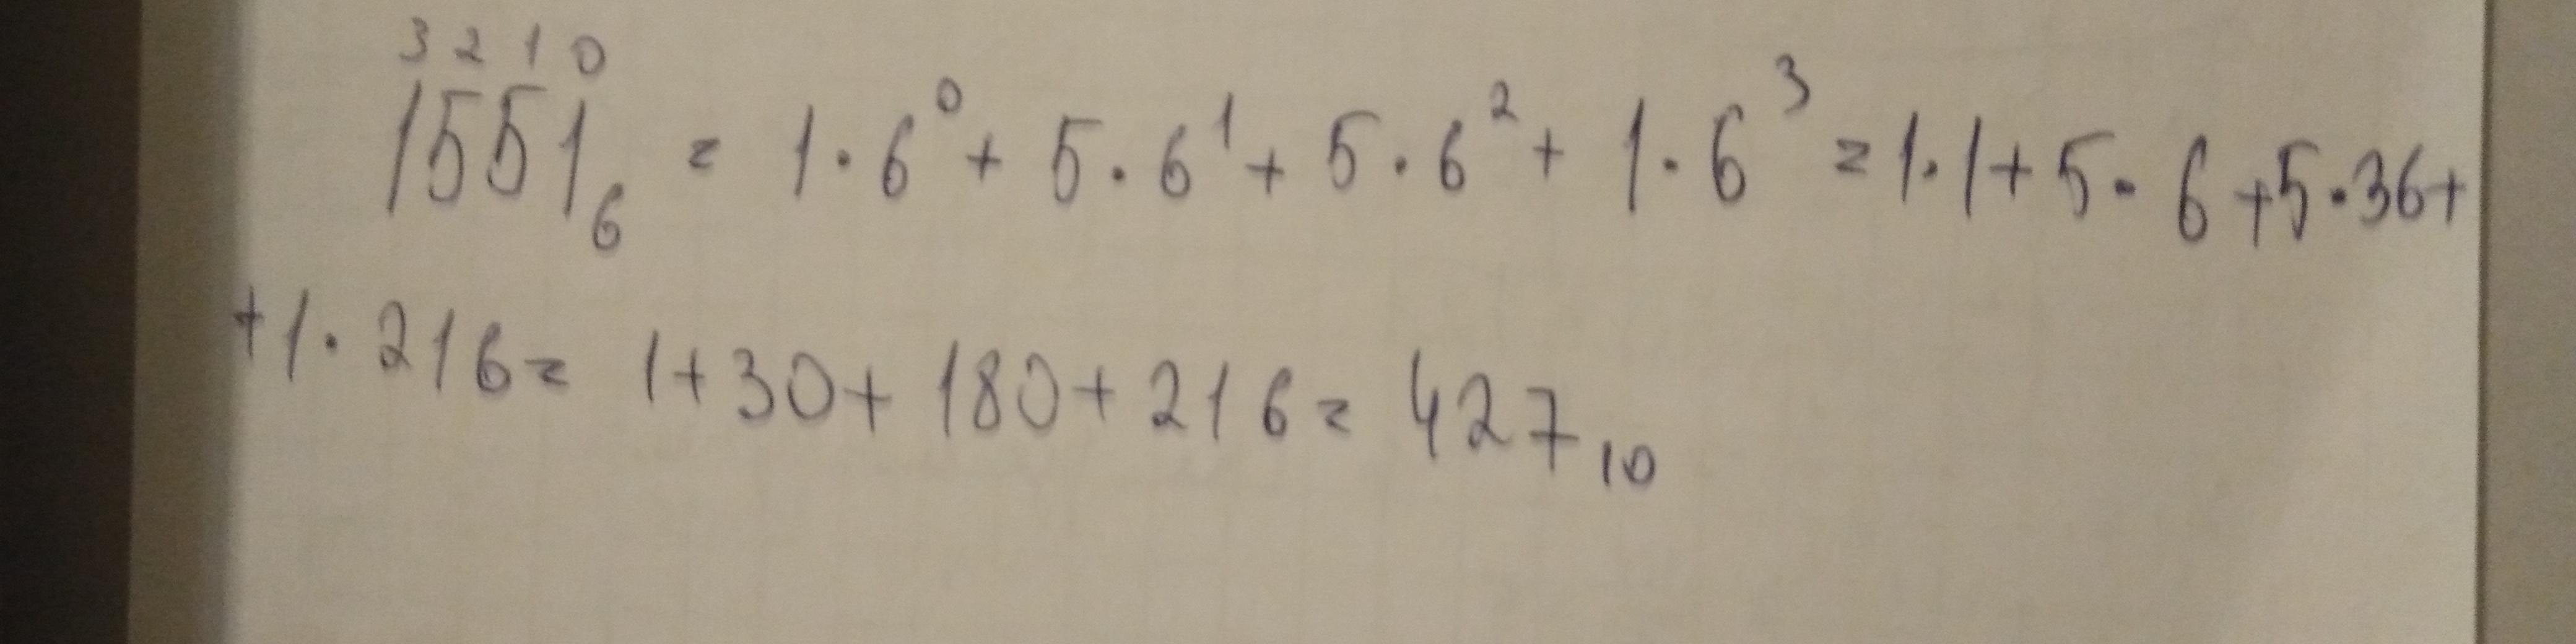 3 2 1 0
1551₆ = 1·6⁰ + 5·6¹ + 5·6² + 1·6³ = 1·1 + 5·6 + 5·36 +
+ 1·216 = 1 + 30 + 180 + 216 = 427₁₀